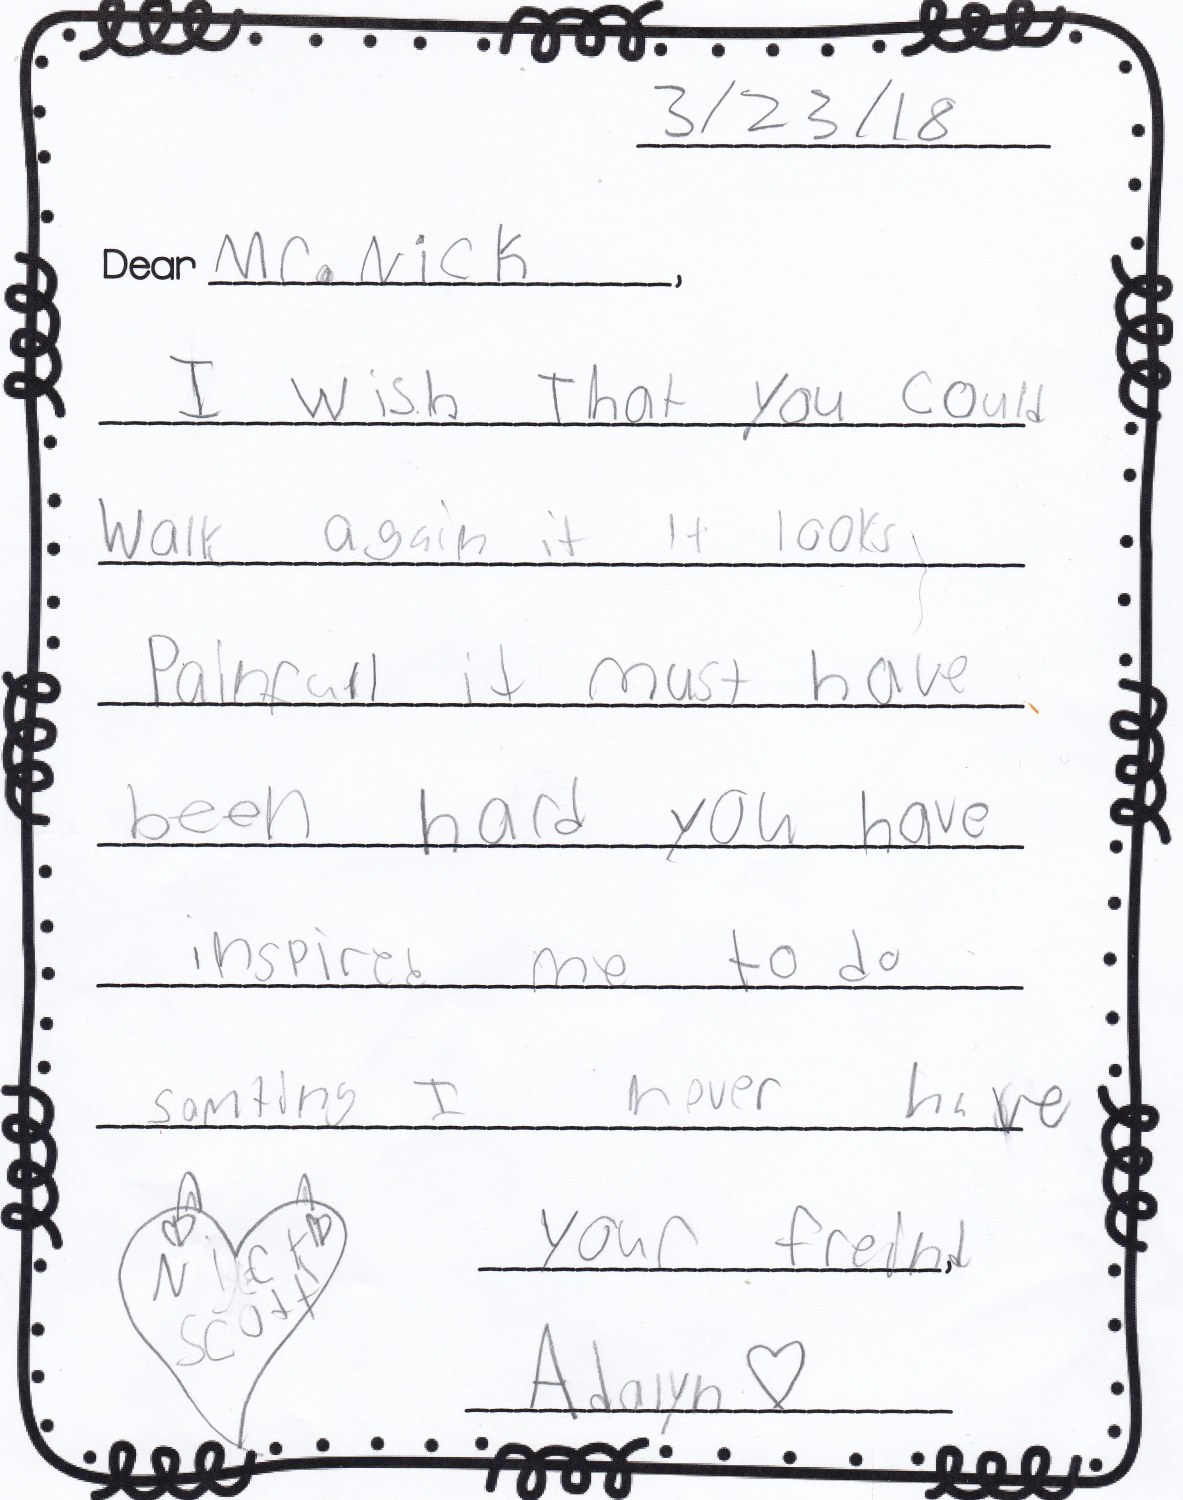 3/23/18
Dear Mr. Nick,
I wish That you could
Walk again it It looks
Painfull it must have
been hard you have
inspired me to do
somting I never have
your freind,
Adalyn
Nick
Scott